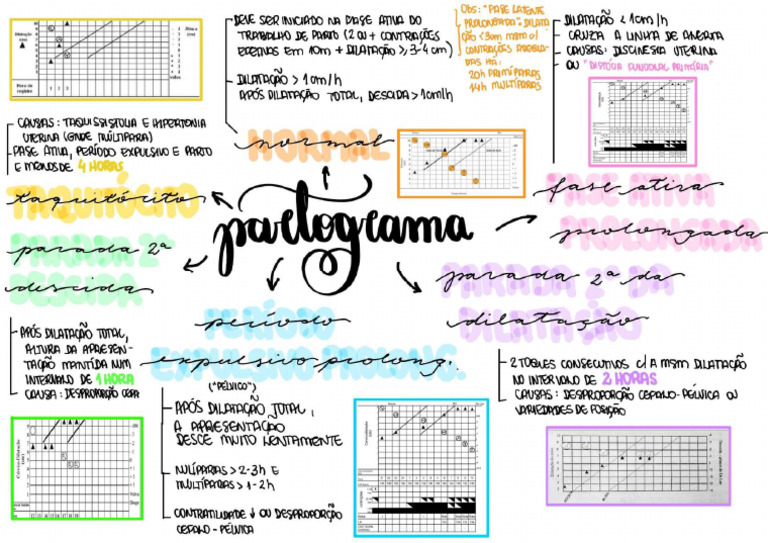 DEVE SER INICIADO NA FASE ATIVA DO
TRABALHO DE PARTO (2 OU + CONTRAÇÕES
EFETIVAS EM 10m + DILATAÇÃO ≥ 3-4 cm)
DILATAÇÃO > 1 cm/h
APÓS DILATAÇÃO TOTAL, DESCIDA > 1cm/h
normal
OBS: "FASE LATENTE
PROLONGADA": DILATA
ÇÃO < 3cm mesmo c/
CONTRAÇÕES
DAS HÁ:
20h PRIMÍPARAS
14h MULTÍPARAS
DILATAÇÃO < 1cm/h
CRUZA A LINHA DE ALERTA
CAUSAS: DISCINESIA UTERINA
OU "DISTÓCIA FUNCIONAL PRIMÁRIA"
fase ativa
prolongada
CAUSAS: TAQUISSISTOLIA E HIPERTONIA
UTERINA (GRANDE MULTÍPARA)
FASE ATIVA, PERÍODO EXPULSIVO E PARTO
E MENOS DE 4 HORAS
taquitócito
partograma
parada 2ª
descida
APÓS DILATAÇÃO TOTAL,
ALTURA DA APRESEN-
TAÇÃO MANTIDA NUM
INTERVALO DE 1 HORA
CAUSA: DESPROPORÇÃO CEFA
período
expulsivo prolong.
("PÉLVICO")
APÓS DILATAÇÃO TOTAL,
A APRESENTAÇÃO
DESCE MUITO LENTAMENTE
NULÍPARAS > 2-3h E
MULTÍPARAS > 1-2h
CONTRATILIDADE ↓ OU DESPROPORÇÃO
CEFALO-PÉLVICA
parada 2ª da
dilatação
2 TOQUES CONSECUTIVOS C/ A MSM DILATAÇÃO
NO INTERVALO DE 2 HORAS
CAUSAS: DESPROPORÇÃO CEFALO-PÉLVICA OU
VARIEDADES DE POSIÇÃO